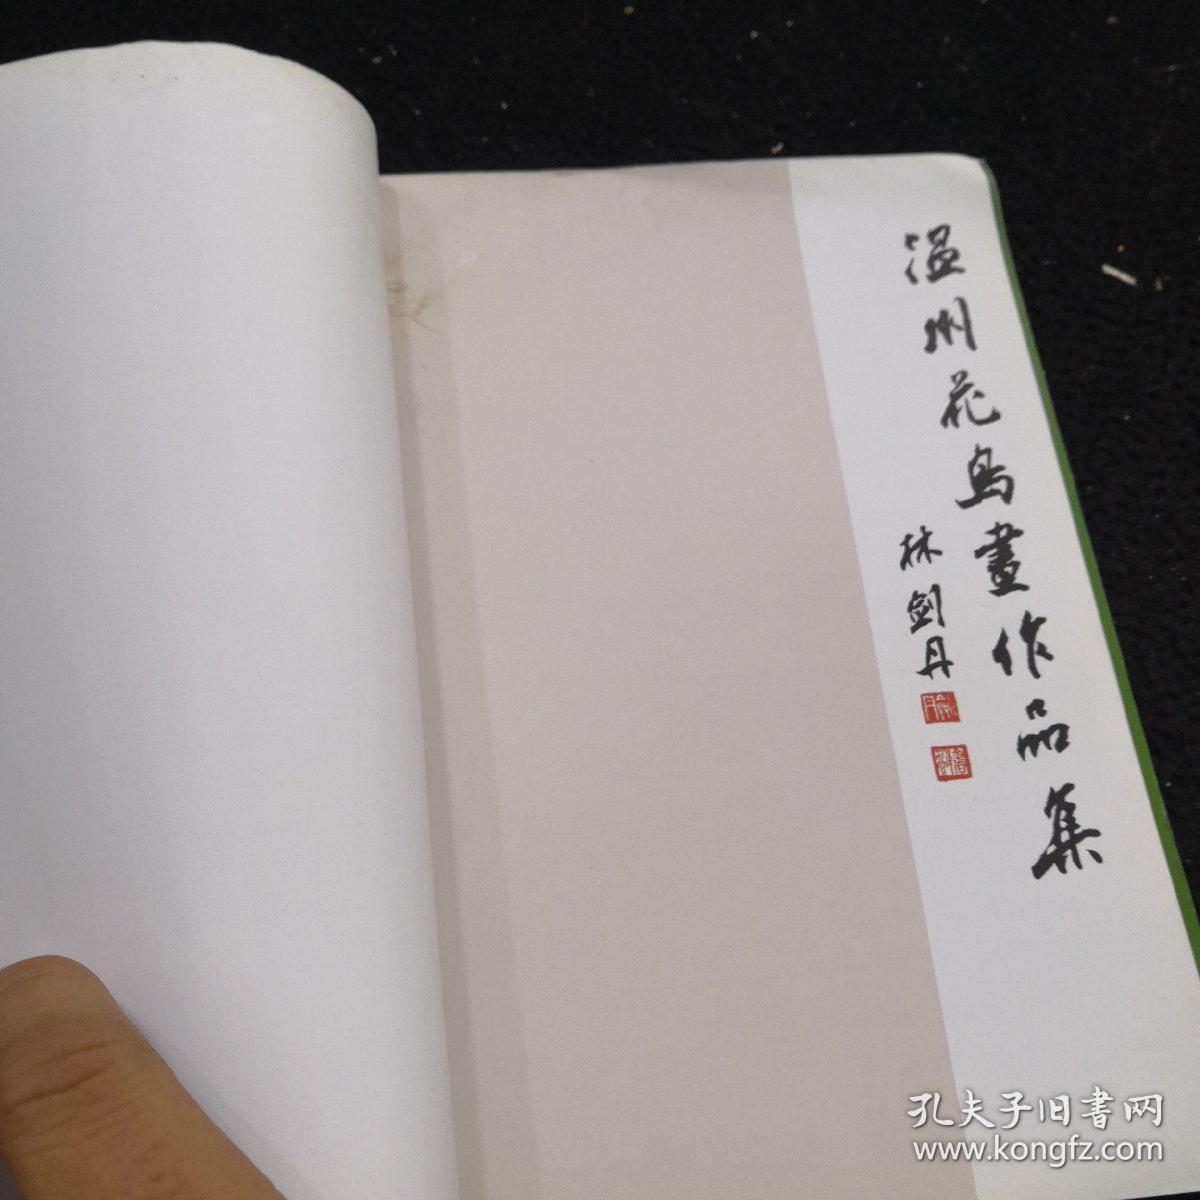 温州花鸟畫作品集
林剑丹
孔夫子旧書网
www.kongfz.com